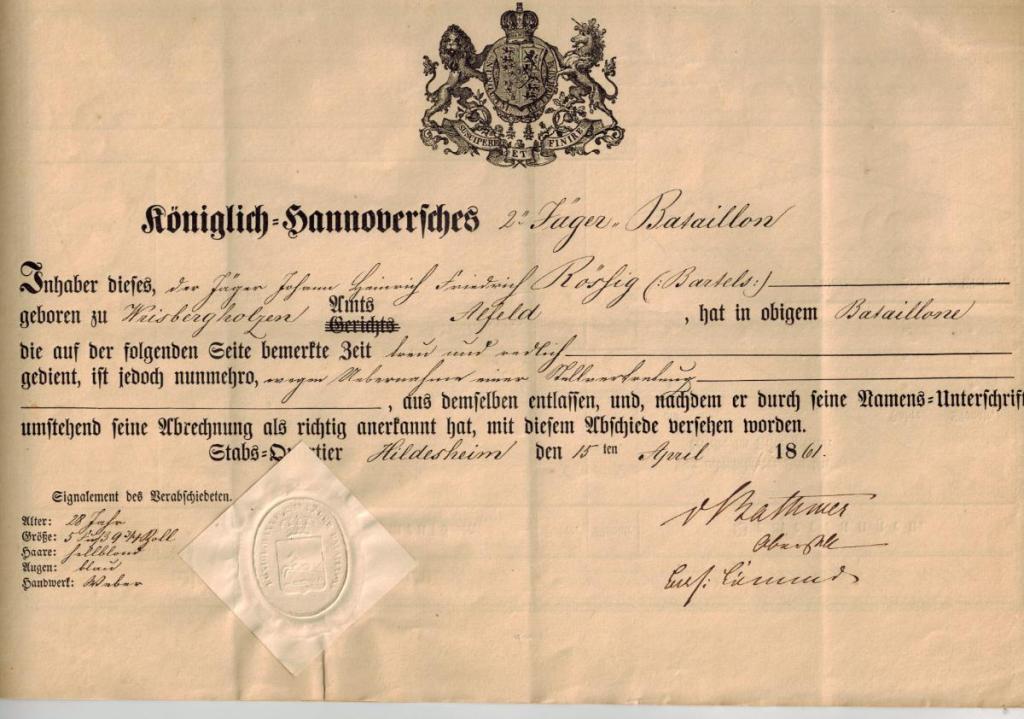 SUSCIPERE ET FINIRE
Königlich-Hannoversches 2n Jäger-Bataillon
Inhaber dieses, der Jäger Johann Heinrich Friedrich Rössig (:Bartels:)
geboren zu Wrisbergholzen Amts Gerichts Alfeld, hat in obigem Bataillone
die auf der folgenden Seite bemerkte Zeit treu und redlich
gedient, ist jedoch nunmehro, wegen Uebernahme einer Stellvertretung
, aus demselben entlassen, und, nachdem er durch seine Namens-Unterschrift
umstehend seine Abrechnung als richtig anerkannt hat, mit diesem Abschiede versehen worden.
Stabs-Quartier Hildesheim den 15 ten April 1861.
Signalement des Verabschiedeten.
Alter: 28 Jahr
Größe: 5 Fuß 9 3/4 Zoll
Haare: hellblond
Augen: blau
Handwerk: Weber